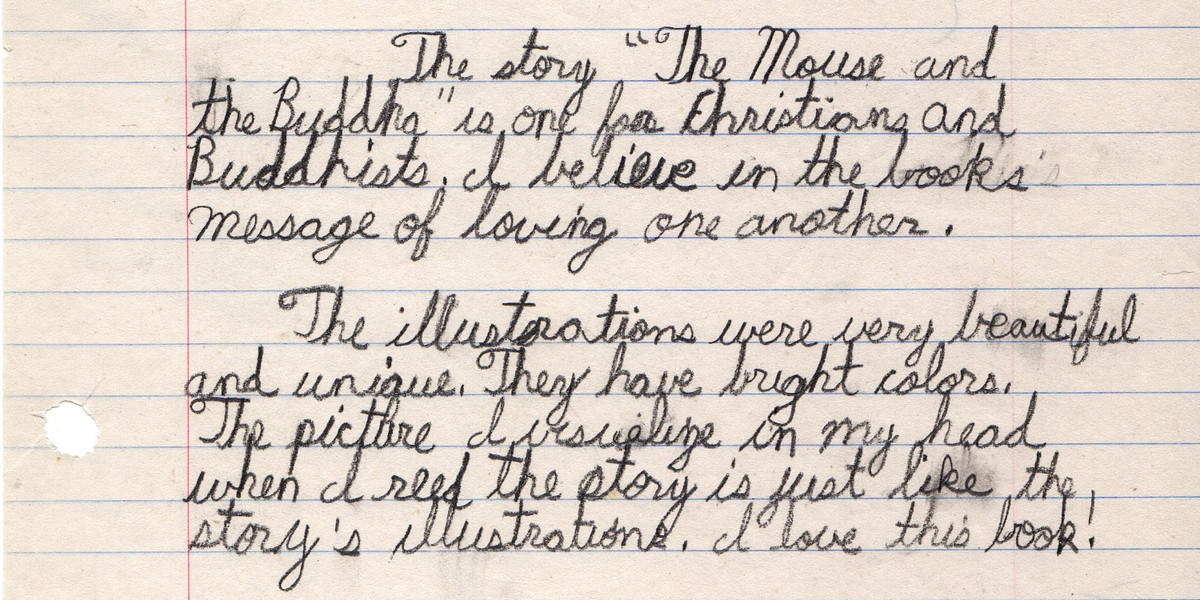 The story "The Mouse and
the Buddha" is one for Christians and
Buddhists. I believe in the book's
message of loving one another.
The illustrations were very beautiful
and unique. They have bright colors.
The picture I visualize in my head
when I read the story is just like the
story's illustrations. I love this book!